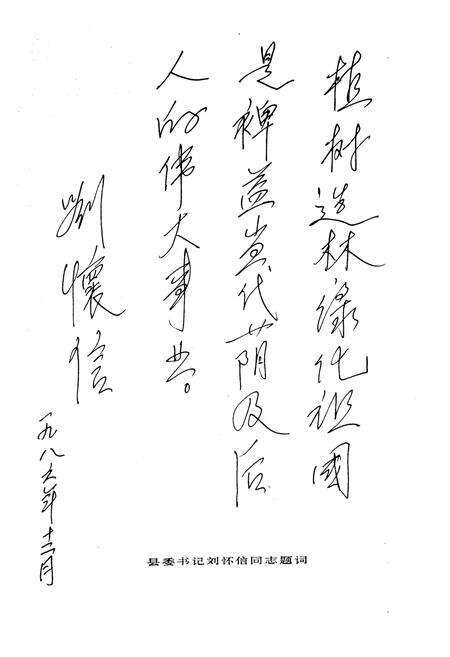 植树造林绿化祖國
是裨益当代荫及后
人的伟大事业。
劉懷信
一九八六年十二月
县委书记刘怀信同志题词